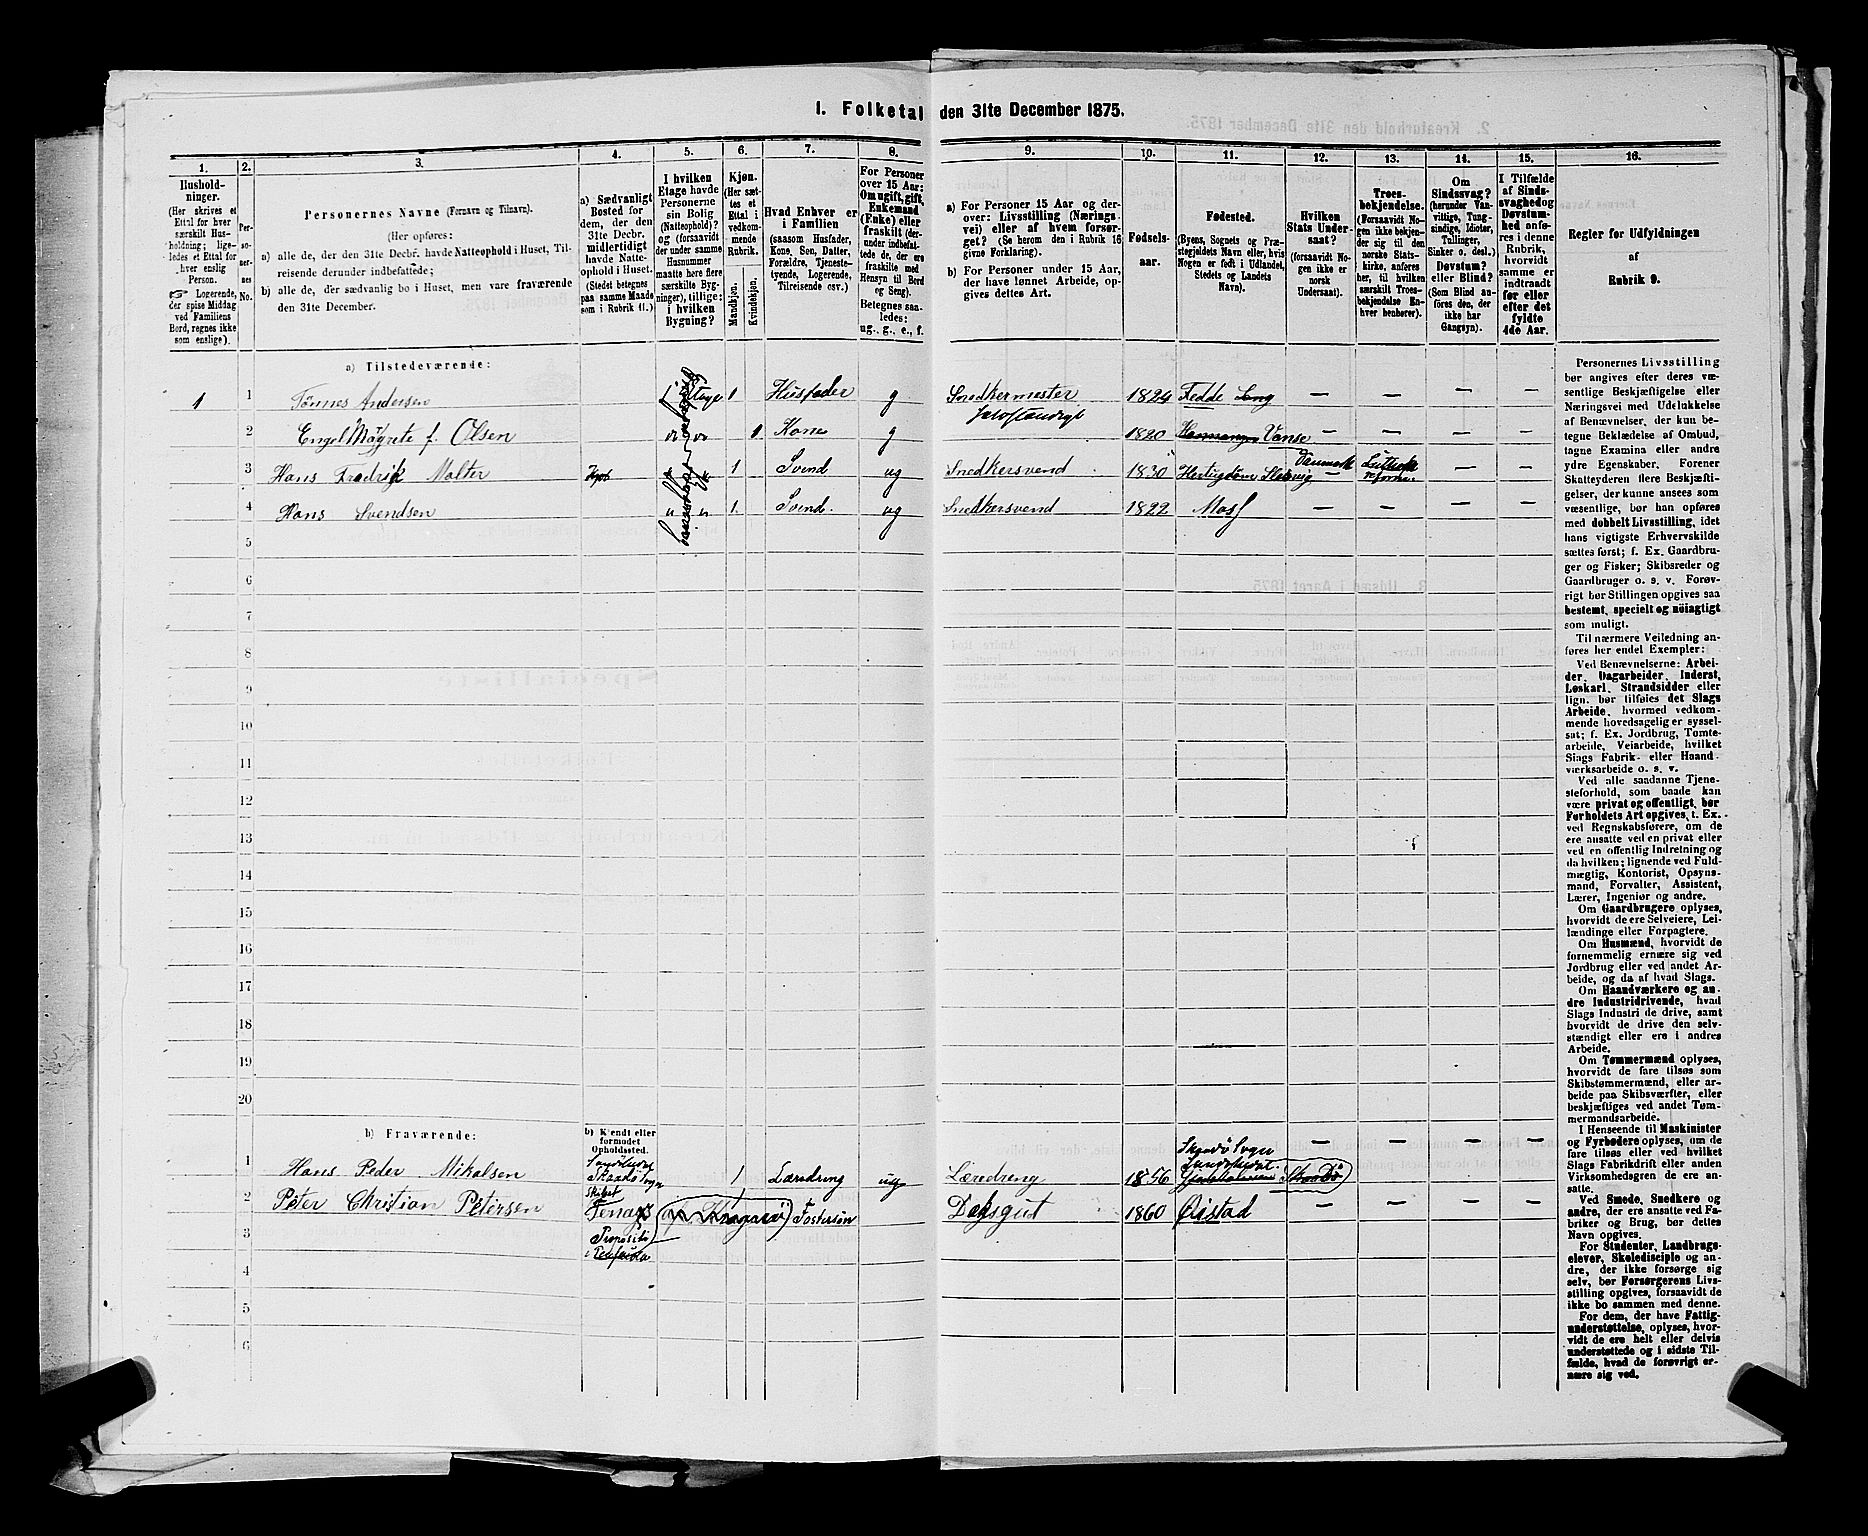 I. Folketal den 31te December 1875.
1.
2.
3.
4.
5.
6.
7.
8.
9.
10.
11.
12.
13.
14.
15.
16.
Hushold-
ninger.
(Her skrives et
Ettal for hver
særskilt Hus-
holdning; lige-
ledes et Ettal for
hver enslig
Person.
☞ Logerende,
der spise Middag
ved Familiens
Bord, regnes ikke
som enslige).
Per-
so-
ner-
nes
No.
Personernes Navne (Fornavn og Tilnavn).
(Her opføres:
a) alle de, der den 31te Decbr. havde Natteophold i Huset, Til-
reisende derunder indbefattede;
b) alle de, der sædvanlig bo i Huset, men vare fraværende
den 31te December.
a) Sædvanligt
Bosted for
dem, der den
31te Decbr.
midlertidigt
havde Natte-
ophold i Huset.
(Stedet betegnes
paa samme Maade
som i Rubrik 11.)
I hvilken
Etage havde
Personerne
sin Bolig
(Natteophold)?
og (forsaavidt
der under samme
Husnummer
maatte høre flere
særskilte Byg-
ninger), tillige:
i hvilken
Bygning?
Kjøn.
(Her sæt-
tes et
Ettal i
vedkom-
mende
Rubrik.
Mandkjøn.
Kvindekjøn.
Hvad Enhver er
i Familien
(saasom Husfader,
Kone, Søn, Datter,
Forældre, Tjeneste-
tyende, Logerende,
Tilreisende osv.)
For Personer
over 15 Aar:
Om ugift, gift,
Enkemand
(Enke) eller
fraskilt (der-
under indbefat-
tede de, der ere
fraskilte med
Hensyn til Bord
og Seng).
Betegnes saa-
ledes:
ug., g., e., f.
a) For Personer 15 Aar og der-
over: Livsstilling (Nærings-
vei) eller af hvem forsør-
get? (Se herom den i Rubrik 16
givne Forklaring).
b) For Personer under 15 Aar,
der have lønnet Arbeide, op-
gives dettes Art.
Fødsels-
aar.
Fødested.
(Byens, Sognets og Præ-
stegjeldets Navn eller, hvis
Nogen er født i Udlandet,
Stedets og Landets
Navn).
Hvilken
Stats Under-
saat?
(forsaavidt No-
gen ikke er
norsk
Undersaat).
Troes-
bekjendelse.
(Forsaavidt No-
gen ikke bekjen-
der sig til den
norske Stats-
kirke, anføres
her, til hvilken
særskilt Troes-
bekjendelse En-
hver henhører).
Om
Sindssvag?
(herunder Van-
vittige, Tung-
sindige, Idioter,
Tullinger,
Sinker o. desl.)
Døvstum?
eller Blind?
(Som Blind an-
føres den, der
ikke har
Gangsyn).
I Tilfælde
af Sinds-
svaghed og
Døvstum-
hed anfø-
res i denne
Rubrik,
hvorvidt
samme er
indtraadt
før eller
efter det
fyldte
4de Aar.
Regler for Udfyldningen
af
Rubrik 9.
a) Tilstedeværende:
1 1 Tønnes Andersen 1 Etage 1 Husfader g Snedkermester selvstændigt 1824 Fedde — — —
2 Engel Magrete f. Olsen 1 Kone g 1820 Vanse — — — —
3 Hans Fredrik Molter 1 Svend ug Snedkersvend 1830 Hertugdom Slesvig Danmark — —
4 Hans Svendsen " " 1 Svend. ug Snedkersvend 1822 Moss — — — —
5
6
7
8
9
10
11
12
13
14
15
16
17
18
19
20
b) Fraværende:
b) Kjendt eller
formodet
Opholdssted.
1 Hans Peder Mikalsen 1 Læredreng ug Læredreng 1856 — — — —
2 Peter Christian Petersen Fostersøn 1860 Øistad — — — —
3
4
5
6
Personernes Livsstilling
bør angives efter deres væ-
sentlige Beskjæftigelse eller
Næringsvei med Udelukkelse
af Benævnelser, der kun be-
tegne Beklædelse af Ombud,
tagne Examina eller andre
ydre Egenskaber. Forener
Skatteyderen flere Beskjæfti-
gelser, der kunne ansees som
væsentlige, bør han opføres
med dobbelt Livsstilling, idet
hans vigtigste Erhvervskilde
sættes først; f. Ex. Gaardbru-
ger og Fisker; Skibsreder og
Gaardbruger o. s. v. Forøv-
rigt bør Stillingen opgives saa
bestemt, specielt og nøiagtigt
som muligt.
Til nærmere Veiledning an-
føres her endel Exempler:
Ved Benævnelserne: Arbei-
der, Dagarbeider, Inderst,
Løskarl, Strandsidder eller
lign. bør tilføies det Slags
Arbeide, hvormed vedkom-
mende hovedsagelig er syssel-
sat; f. Ex. Jordbrug, Tomte-
arbeide, Veiarbeide, hvilket
Slags Fabrik- eller Haand-
værksarbeide o. s. v.
Ved alle saadanne Tjene-
steforhold, som baade kan
være privat og offentligt, bør
Forholdets Art opgives, f. Ex.
ved Regnskabsførere, om de
ere ansatte ved en privat eller
ved en offentlig Indretning og
da hvilken; lignende ved Fuld-
mægtig, Kontorist, Opsyns-
mand, Forvalter, Assistent,
Lærer, Ingeniør og andre.
Om Gaardbrugere oplyses,
hvorvidt de ere Selveiere, Lei-
lændinge eller Forpagtere.
Om Husmænd, hvorvidt de
fornemmelig ernære sig ved
Jordbrug eller ved andet Ar-
beide, og da af hvad Slags.
Om Haandværkere og an-
dre Industridrivende, hvad
Slags Industri de drive, samt
hvorvidt de drive den selv-
stændigt eller ere i andres
Arbeide.
Om Tømmermænd oplyses,
hvorvidt de fare tilsøs som
Skibstømmermænd, eller ar-
beide paa Skibsværfter, eller
beskjæftiges ved andet Tøm-
mermandsarbeide.
I Henseende til Maskinister
og Fyrbødere oplyses, om de
fare tilsøs eller ved hvilket
Slags Fabrikdrift eller anden
Virksomhedsgren de ere an-
satte.
Ved Smede, Snedkere og
andre, der ere ansatte ved Fa-
briker og Brug, bør dettes
Navn opgives.
For Studenter, Landbrugs-
elever, Skoledisciple og an-
dre, der ikke forsørge sig
selv, bør Forsørgerens Livs-
stilling opgives, forsaavidt de
ikke bo sammen med denne.
For dem, der have Fattig-
understøttelse, oplyses, hvor-
vidt de ere helt eller delvis
understøttede og i sidste Til-
fælde, hvad de forøvrigt er-
nære sig ved.